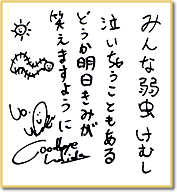 みんな弱虫けむし
泣いちゃうこともある
どうか明日きみが
笑えますように
Goodbye